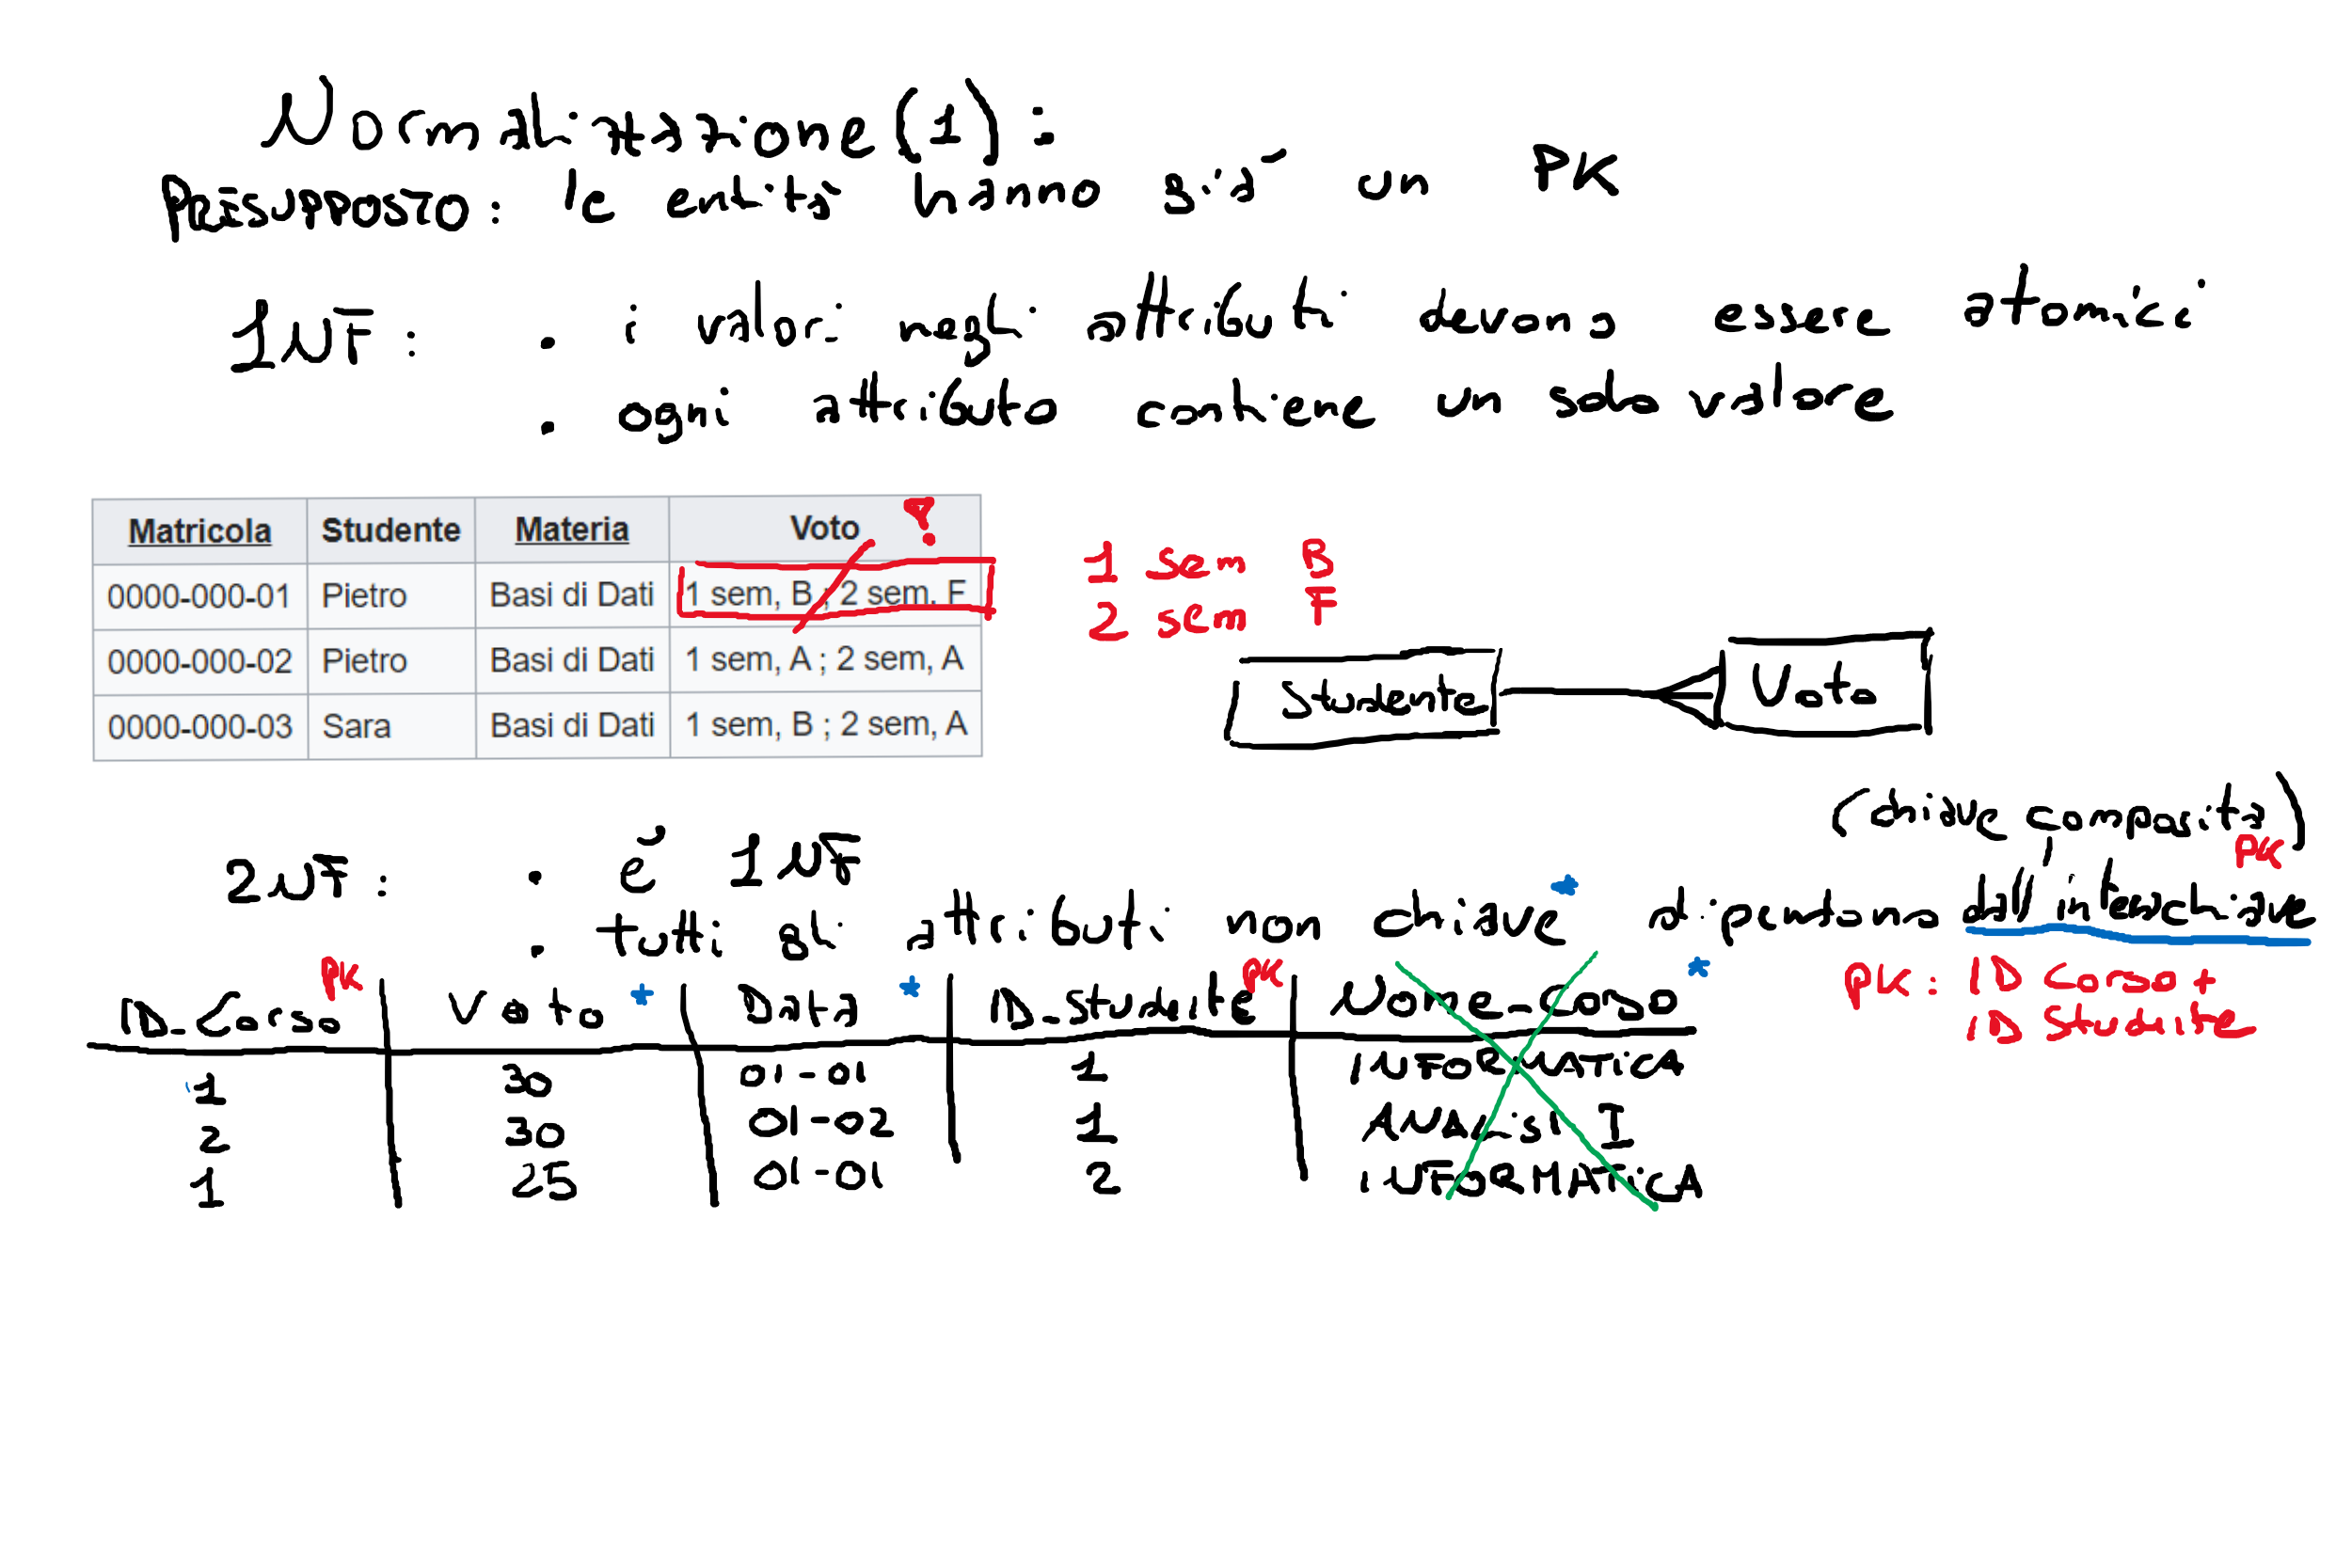 Normalizzazione (1):
PRESUPPOSTO: le entità hanno già un PK
1NF: • i valori negli attributi devono essere atomici
• ogni attributo contiene un solo valore
Matricola Studente Materia Voto !
0000-000-01 Pietro Basi di Dati 1 sem, B ; 2 sem, F
0000-000-02 Pietro Basi di Dati 1 sem, A ; 2 sem, A
0000-000-03 Sara Basi di Dati 1 sem, B ; 2 sem, A
1 sem B
2 sem F
Studente Voto
(chiave composita)
2NF: • è 1NF
• tutti gli attributi non chiave* dipendono dall'intera chiave PK
PK: ID Corso +
ID Studente
ID_Corso PK Voto * Data * ID_Studente PK Nome_Corso *
1 30 01-01 1 INFORMATICA
2 30 01-02 1 ANALISI I
1 25 01-01 2 INFORMATICA